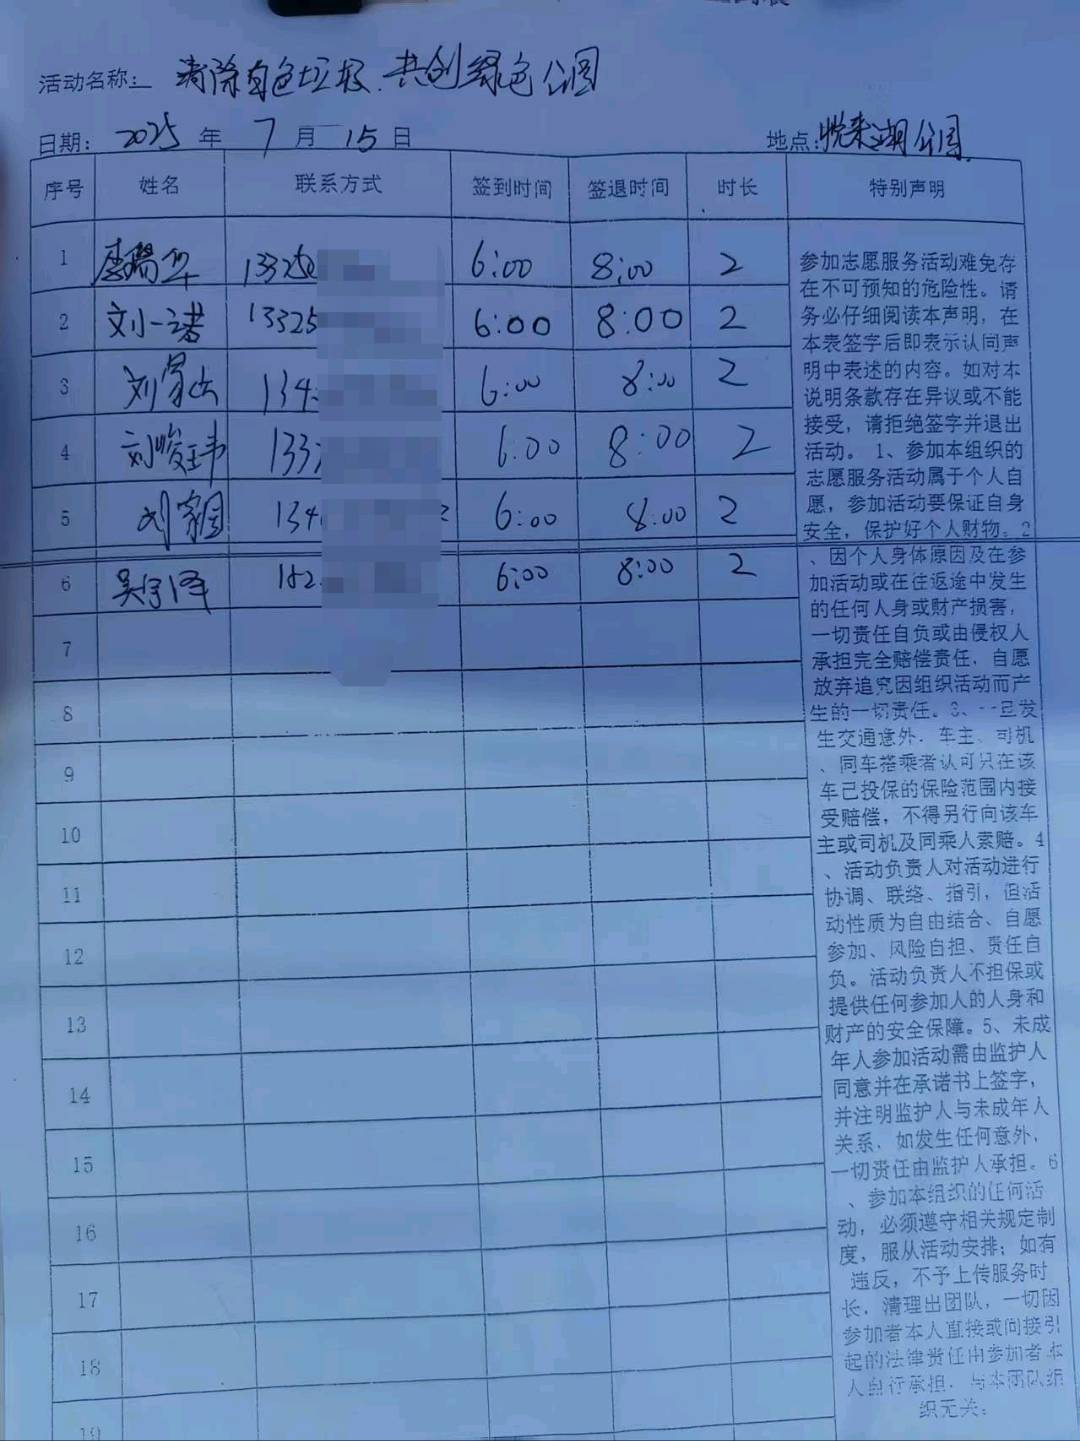 活动名称: 清除白色垃圾.共创绿色公园
日期: 2025 年 7 月 15 日 地点:悦来湖公园
序号 姓名 联系方式 签到时间 签退时间 时长 特别声明
1 李瑞华 13325 6:00 8:00 2
2 刘一诺 13325 6:00 8:00 2
3 刘 134 6:00 8:00 2
4 刘峻玮 133 6:00 8:00 2
5 刘 134 6:00 8:00 2
6 吴宇泽 182 6:00 8:00 2
7
8
9
10
11
12
13
14
15
16
17
18
19
参加志愿服务活动难免存
在不可预知的危险性。请
务必仔细阅读本声明，在
本表签字后即表示认同声
明中表述的内容。如对本
说明条款存在异议或不能
接受，请拒绝签字并退出
活动。 1、参加本组织的
志愿服务活动属于个人自
愿，参加活动要保证自身
安全，保护好个人财物。2
、因个人身体原因及在参
加活动或在往返途中发生
的任何人身或财产损害，
一切责任自负或由侵权人
承担完全赔偿责任，自愿
放弃追究因组织活动而产
生的一切责任。3、一旦发
生交通意外，车主、司机
、同车搭乘者认可只在该
车已投保的保险范围内接
受赔偿，不得另行向该车
主或司机及同乘人索赔。4
、活动负责人对活动进行
协调、联络、指引，但活
动性质为自由结合、自愿
参加、风险自担、责任自
负。活动负责人不担保或
提供任何参加人的人身和
财产的安全保障。5、未成
年人参加活动需由监护人
同意并在承诺书上签字，
并注明监护人与未成年人
关系，如发生任何意外，
一切责任由监护人承担。6
、参加本组织的任何活
动，必须遵守相关规定制
度，服从活动安排；如有
违反，不予上传服务时
长，清理出团队，一切因
参加者本人直接或间接引
起的法律责任由参加者本
人自行承担，与本团队组
织无关。